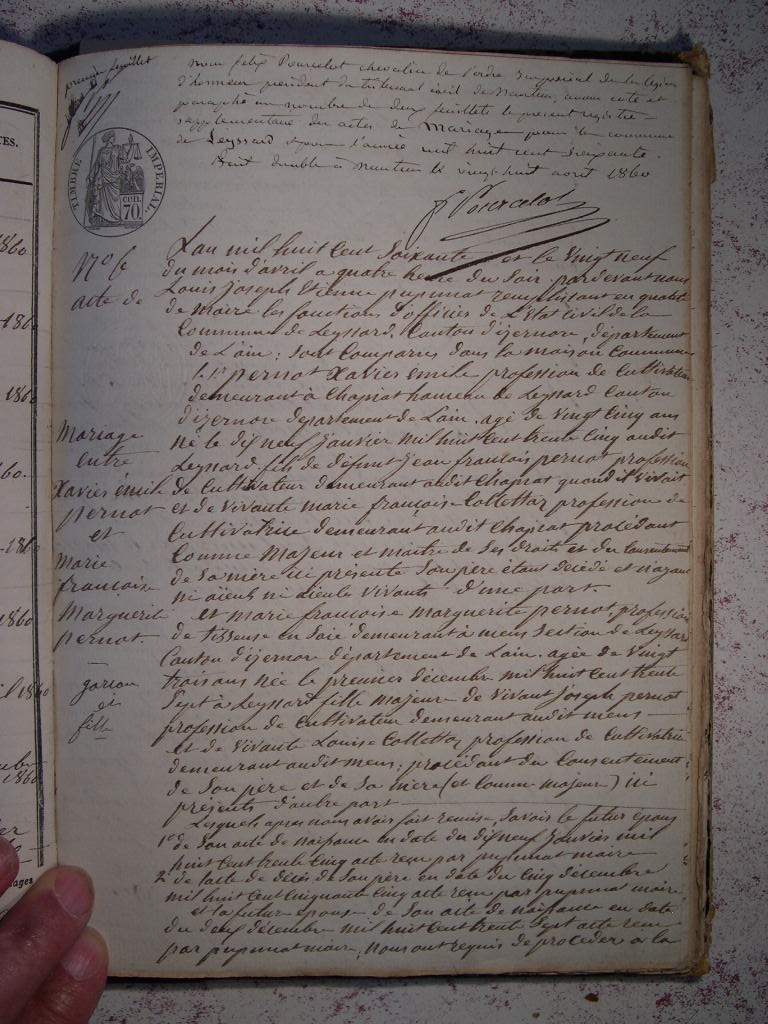 premier feuillet
nous felix Pourcelot chevalier de l'ordre Impérial de la légion
d'honneur président du tribunal civil de Nantua, avons coté et
paraphé au nombre de deux feuillets le present registre
supplémentaire des actes de Mariage pour la commune
de Leyssard pour l'année mil huit cent soixante.
Fait double à Nantua le vingt huit avril 1860
f Pourcelot
TIMBRE IMPERIAL.
70 cen.
L'an mil huit Cent Soixante et le Vingt neuf
du mois d'avril a quatre heure du Soir pardevant nous
Louis Joseph Etienne pupunat remplissant en qualité
de maire les fonctions d'officier de L'Etat Civil de la
Commune de Leyssard, Canton d'izernore, département
de L'ain; Sont Comparus dans la maison Commune
1.° pernot Xavier émile profession de Cultivateur
demeurant à Chapiat hameau de Leyssard Canton
d'izernore departement de L'ain. agé de Vingt Cinq ans
né le dix neuf janvier mil huit Cent trente Cinq audit
Leyssard. fils de défunt jean françois pernot profession
de Cultivateur demeurant audit Chapiat quand il Vivait
et de Vivante marie françoise Collettaz profession de
Cultivatrice demeurant audit Chapiat procédant
Comme Majeur et maitre de Ses droits et du Consentement
de Sa mère ici présente Son père étant décédé et n'ayant
ni aieuls ni aieules Vivants d'une part.
et marie françoise marguerite pernot, profession
de tisseuse en Soie demeurant à mens Section de Leyssard
Canton d'izernore département de L'ain. agée de Vingt
trois ans née le premier décembre mil huit Cent trente
Sept à Leyssard fille majeure de Vivant joseph pernot
profession de Cultivateur demeurant audit mens
et de Vivante Louise Collettaz profession de Cultivatrice
demeurant audit mens; procédant du Consentement
de Son père et de Sa mère (et Comme majeur) ici
présents d'autre part
Lesquels après nous avoir fait remise, Savoir le futur epoux
1° de Son acte de naissance en date du dix neuf Janvier mil
huit Cent trente Cinq acte reçu par pupunat maire
2° de l'acte de décès de Son père en date du Cinq décembre
mil huit Cent Cinquante Cinq acte reçu par pupunat maire
et la future epouse de Son acte de naissance en date
du deux décembre mil huit Cent trente Sept acte reçu
par pupunat maire, Nous ont requis de procéder à la
N° 6
acte de
Mariage
entre
Xavier émile
pernot
et
Marie
françoise
Marguerite
pernot.
garçon
et
fille